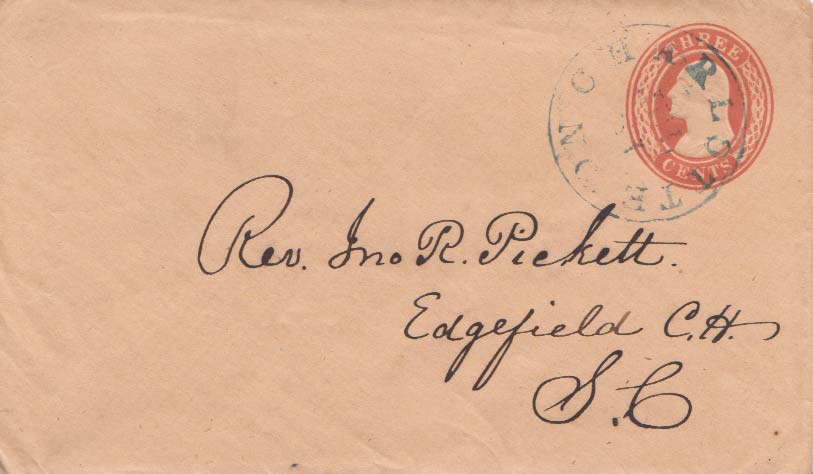 THREE
CENTS
CHARLESTON
Rev. Jno R. Pickett.
Edgefield C.H.
S.C